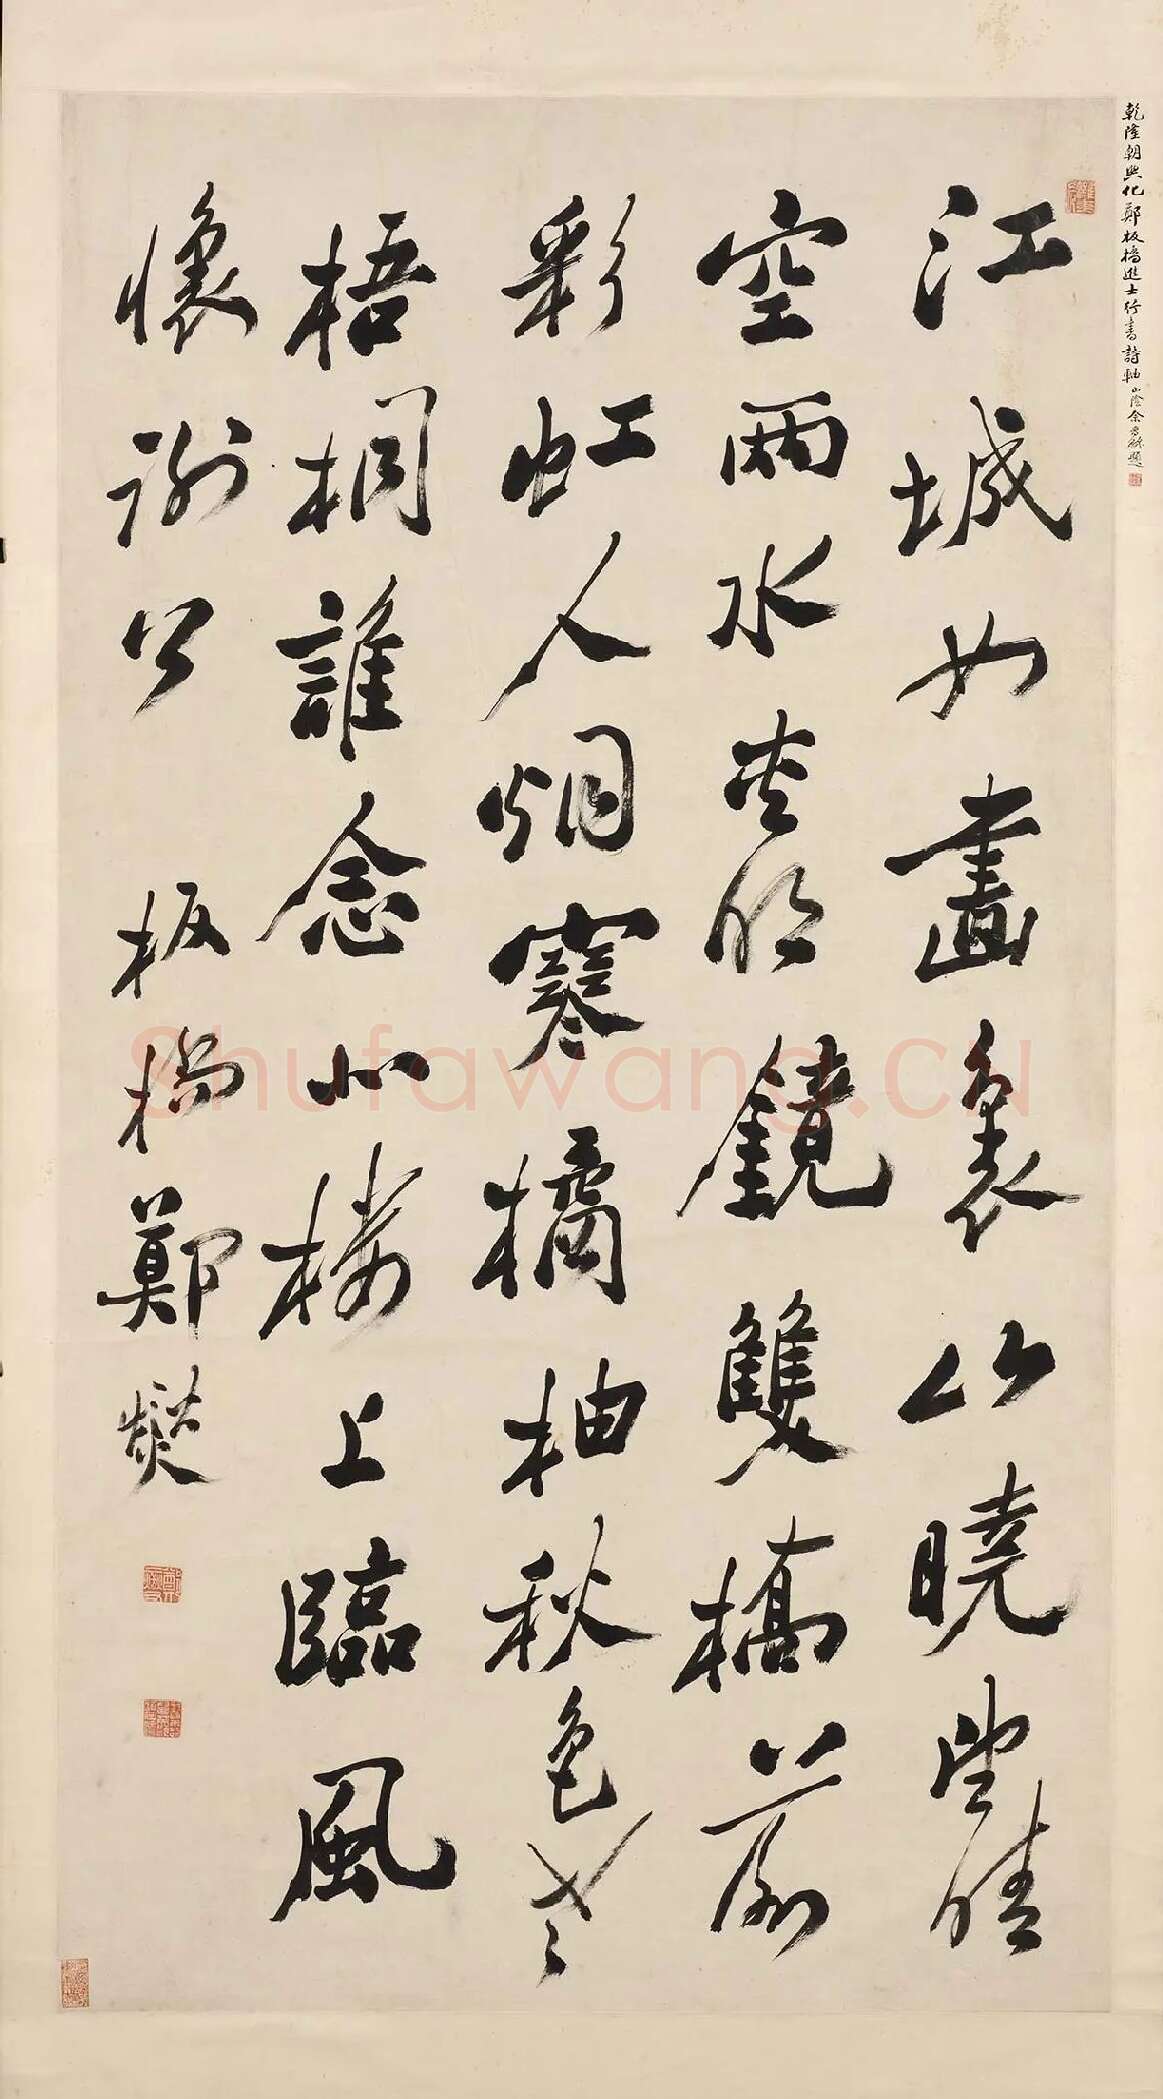 乾隆朝興化鄭板橋進士行書詩軸 山陰余題
江城如畫裏山曉望晴
空兩水夾明鏡雙橋前
彩虹人烟寒橘柚秋色老
梧桐誰念北樓上臨風
懷謝公 板橋鄭燮
Shufawang.CN